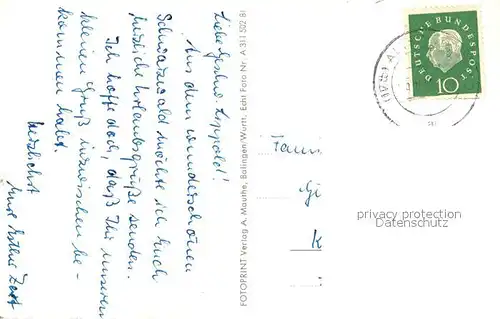 Liebe Geschw. Lippold!
Aus dem wunderschönen
Schwarzwald möchte ich Euch
herzliche Urlaubsgrüße senden.
Ich hoffe doch, daß Ihr unseren
kleinen Gruß inzwischen be-
kommen habt.
Herzlichst
Eure
FOTOPRINT Verlag A. Mauthe, Balingen/Württ. Echt Foto Nr. A 311 502 B
DEUTSCHE BUNDESPOST
10
Fam
privacy protection
Datenschutz